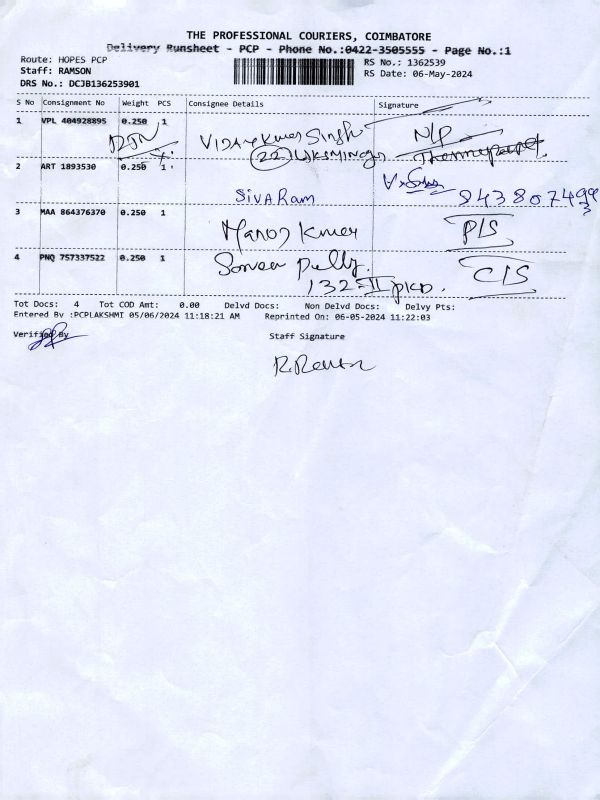 THE PROFESSIONAL COURIERS, COIMBATORE
Delivery Runsheet - PCP - Phone No.:0422-3505555 - Page No.:1
Route: HOPES PCP
RS No.: 1362539
Staff: RAMSON
RS Date: 06-May-2024
DRS No.: DCJB136253901
S No Consignment No Weight PCS Consignee Details Signature
1 VPL 404928895 0.250 1
Vijay Kumar Singh N/P
22
2 ART 1893530 0.250 1
SIVA Ram
3 MAA 864376370 0.250 1
Manoj Kumar P/S
4 PNQ 757337522 0.250 1
C/S
132-II
Tot Docs: 4 Tot COD Amt: 0.00 Delvd Docs: Non Delvd Docs: Delvy Pts:
Entered By :PCPLAKSHMI 05/06/2024 11:18:21 AM Reprinted On: 06-05-2024 11:22:03
Verified By Staff Signature